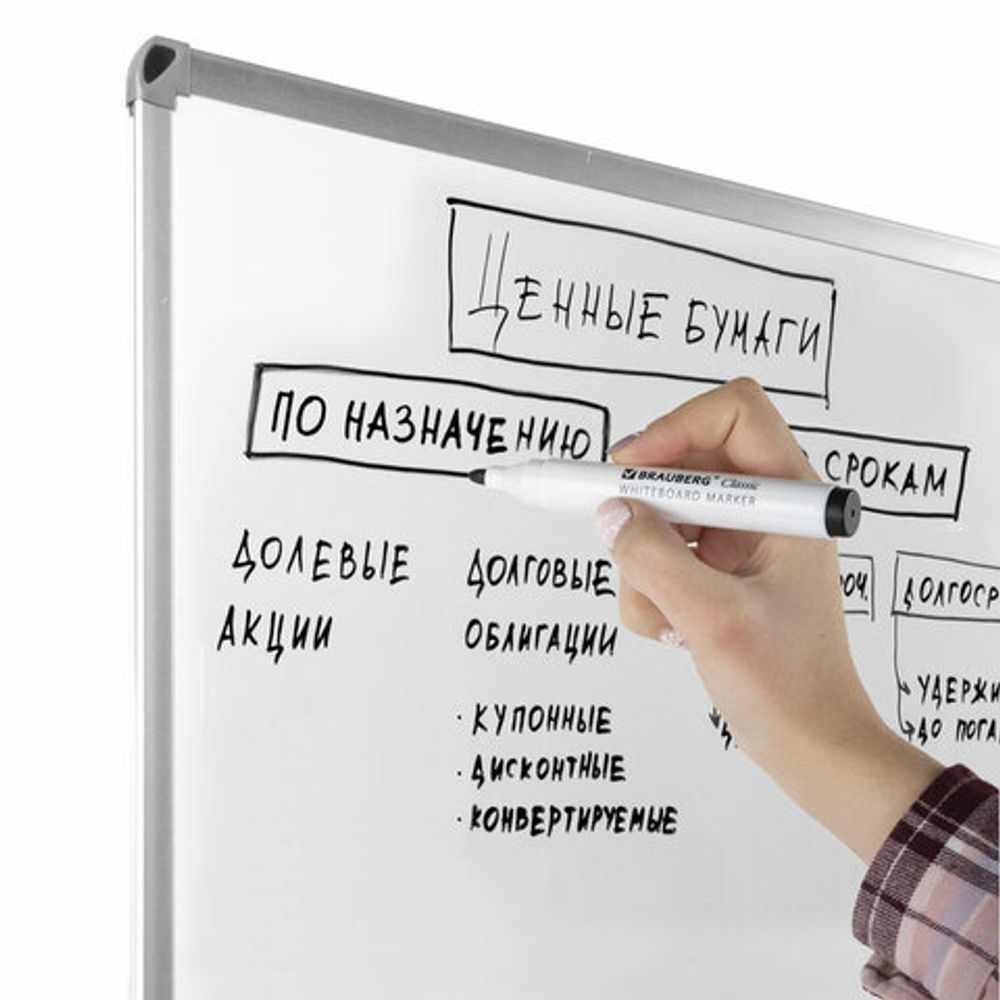 ЦЕННЫЕ БУМАГИ
ПО НАЗНАЧЕНИЮ
СРОКАМ
BRAUBERG® Classic
WHITEBOARD MARKER
ДОЛЕВЫЕ
АКЦИИ
ДОЛГОВЫЕ
ОБЛИГАЦИИ
· КУПОННЫЕ
· ДИСКОНТНЫЕ
· КОНВЕРТИРУЕМЫЕ
ОЧ.
ДОЛГОСР
УДЕРЖИ
ДО ПОГА